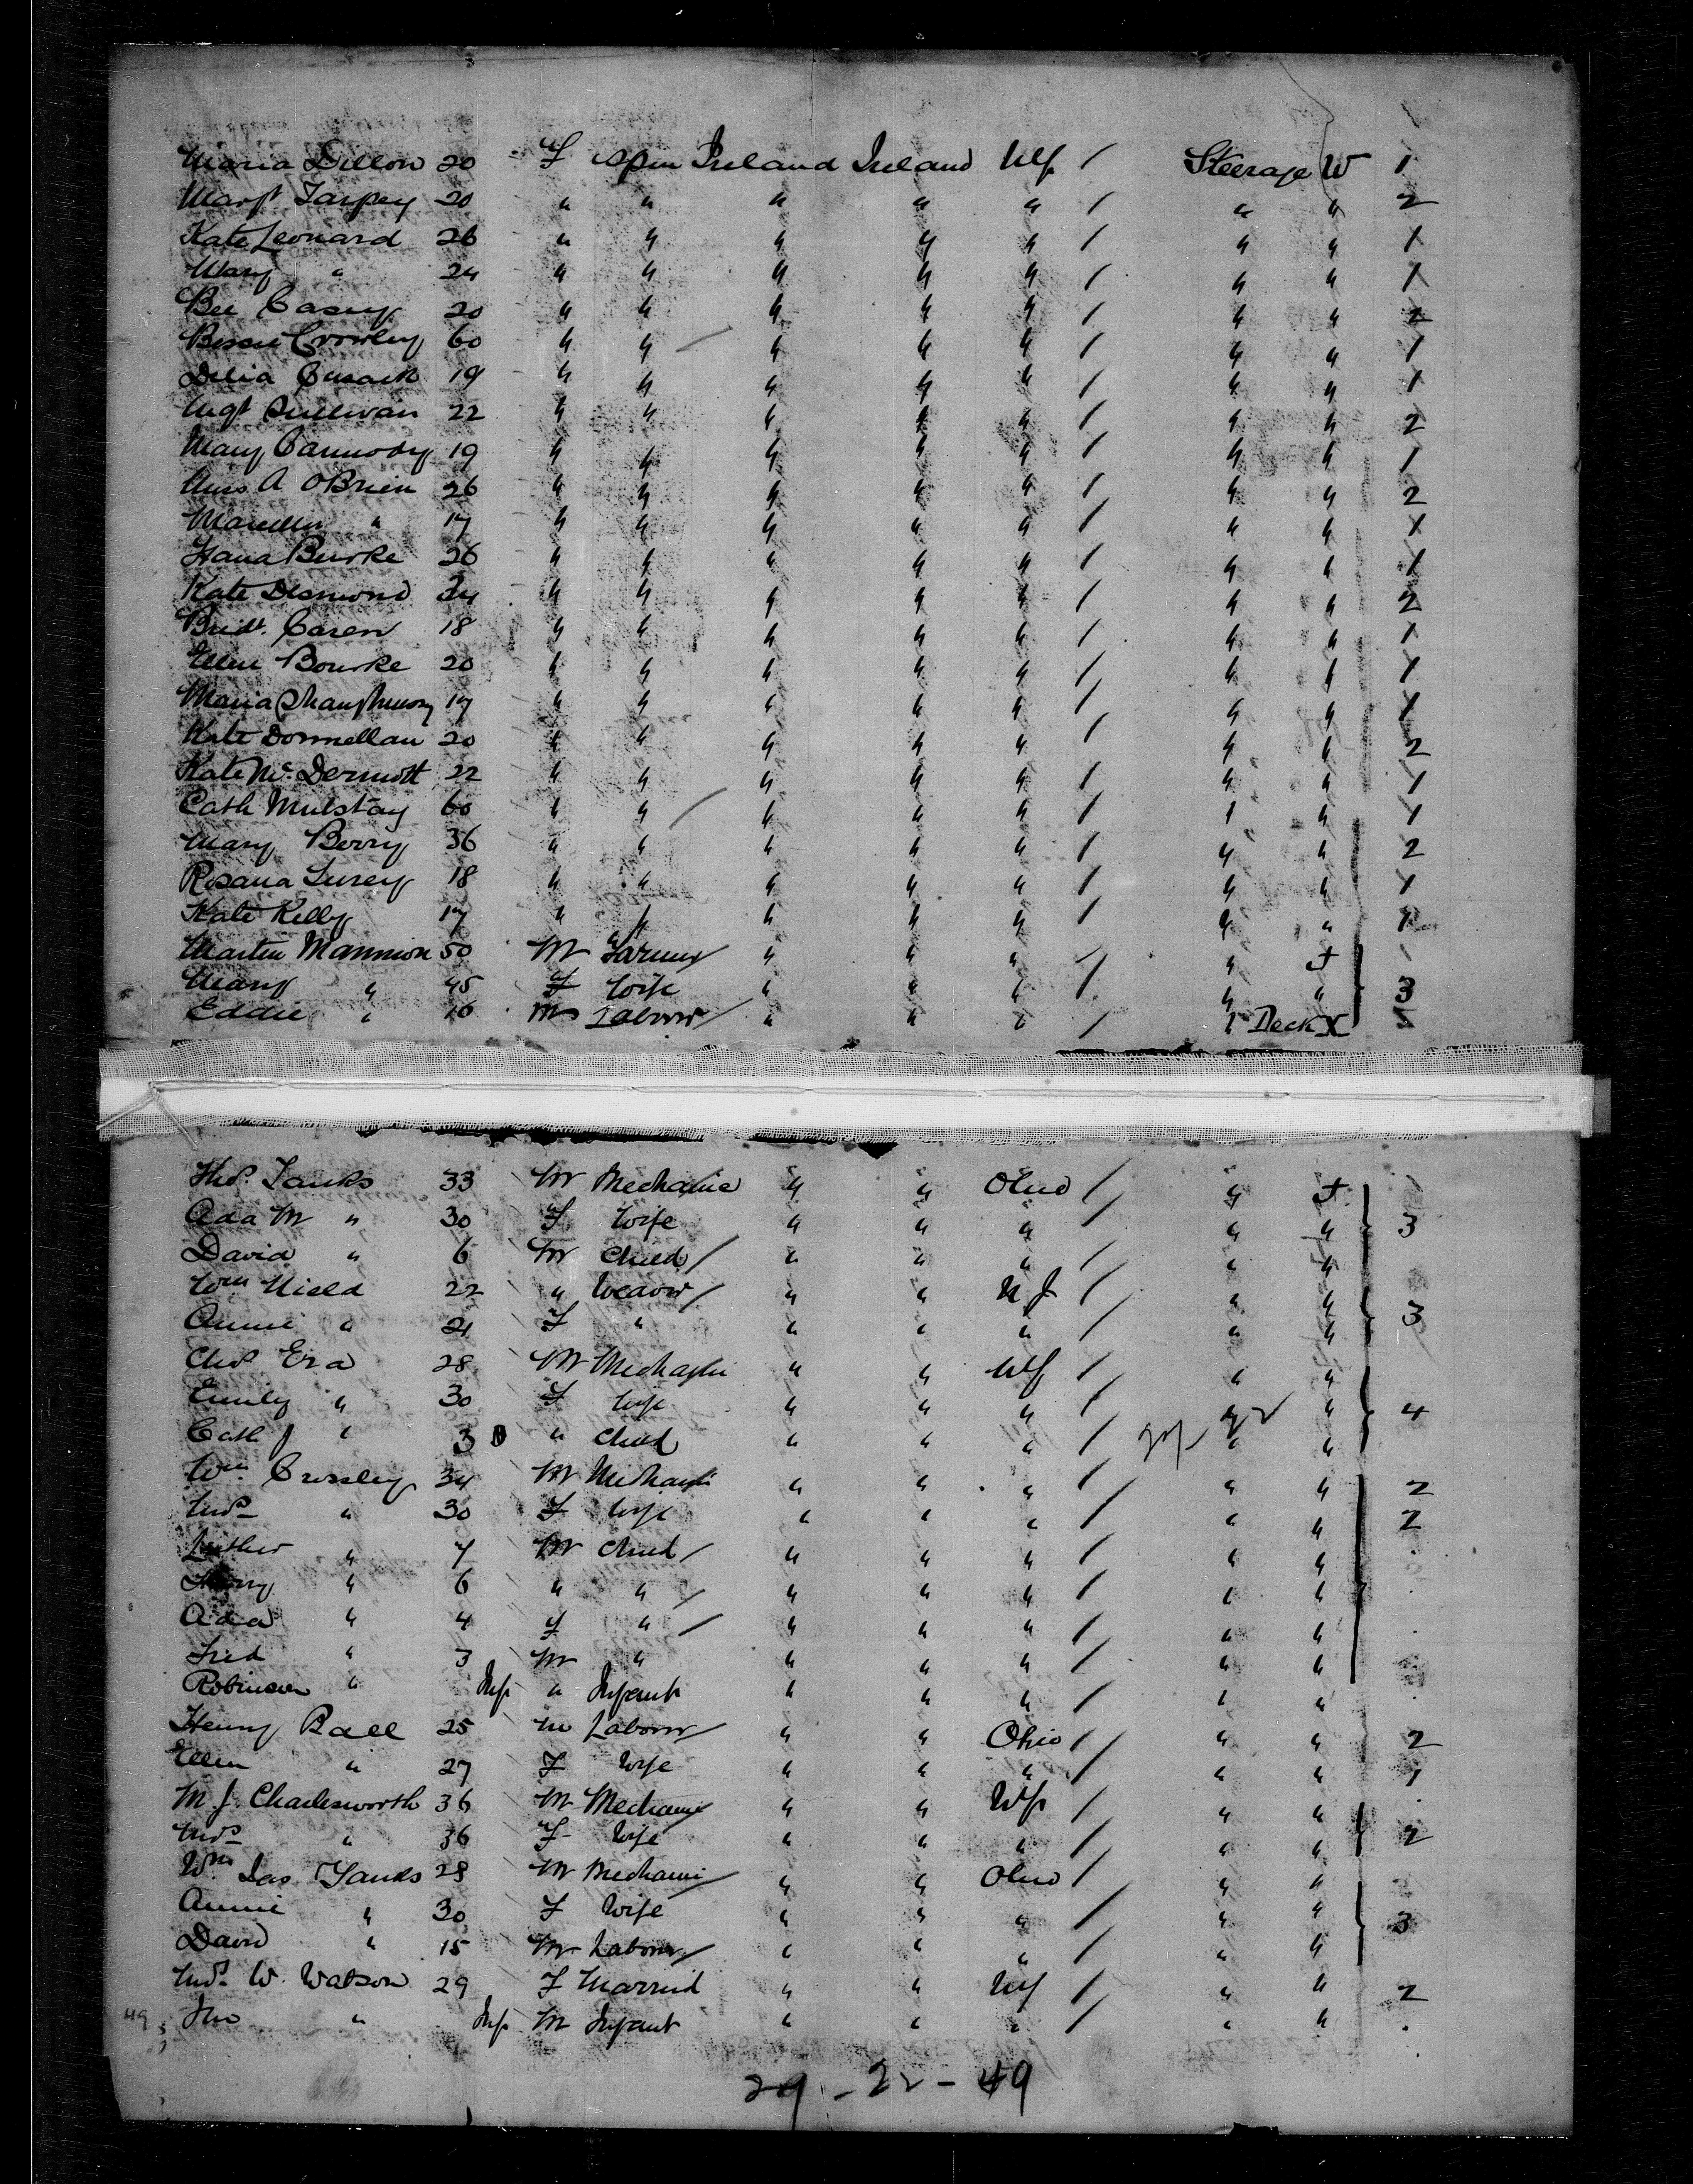 Maria Dillon 20 F Spin Ireland Ireland NY / Steerage W 1
Margt Tarpey 20 " " " " " / " " 2
Kate Leonard 26 " " " " " / " " 1
Mary " 24 " " " " " / " " 1
Bee Casey 20 " " " " " / " " 2
Bessie Crowley 60 " " " " " / " " 1
Delia Cusack 19 " " " " " / " " 1
Mgt Sullivan 22 " " " " " / " " 2
Mary Carmody 19 " " " " " / " " 1
A OBrien 26 " " " " " / " " 2
" 17 " " " " " / " " 1
Hana Burke 26 " " " " " / " " 1
Kate Desmond 24 " " " " " / " " 2
Bridt. Caren 18 " " " " " / " " 1
Ellen Bourke 20 " " " " " / " " 1
Maria Shaughnessy 17 " " " " " / " " 1
Kate Donnellan 20 " " " " " / " " 2
Kate Mc. Dermott 22 " " " " " / " " 1
Cath Mulstay 60 " " " " " / " " 1
Mary Berry 36 " " " " " / " " 2
Rosana 18 " " " " " / " " 1
Kate Kelly 17 " " " " " / " " 1
Martin Mannion 50 M Farmer " " " / "
Mary " 45 F Wife " " " / " " 3
Eddie " 16 M Labour " " " / " Deck X
Thos. Tanks 33 M Mechanic " " Ohio / "
Ada M " 30 F Wife " " " / " " 3
David " 6 M Child " " " / " "
Wm Nield 22 " Weaver " " NJ / " "
Annie " 21 F " " " " / " " 3
Chas Era 28 M Mechanic " " NY / " "
Emily " 30 F Wife " " " / " " 4
Cath J " 3 " Child " " " / " "
Wm Crossley 34 M Mechanic " " " / " " 2
Mrs " 30 F Wife " " " / " " 2
Luther " 7 M Child " " " / " "
Harry " 6 " " " " " / " "
Ada " 4 F " " " " / " "
Fred " 3 M " " " " / " "
Robinson " Inf " Infant " " " / " "
Henry Ball 25 M Labour " " Ohio / " " 2
Ellen " 27 F Wife " " " / " " 1
M J. Charlesworth 36 M Mechanic " " NY / " "
Mrs " 36 F Wife " " " / " " 2
Wm Jas Tanks 28 M Mechanic " " Ohio / " "
Annie " 30 F Wife " " " / " " 3
David " 15 M Labour " " " / " "
Mrs. W. Watson 29 F Married " " NY / " " 2
49 Jno " Inf M Infant " " " / " "
29 - 22 - 49